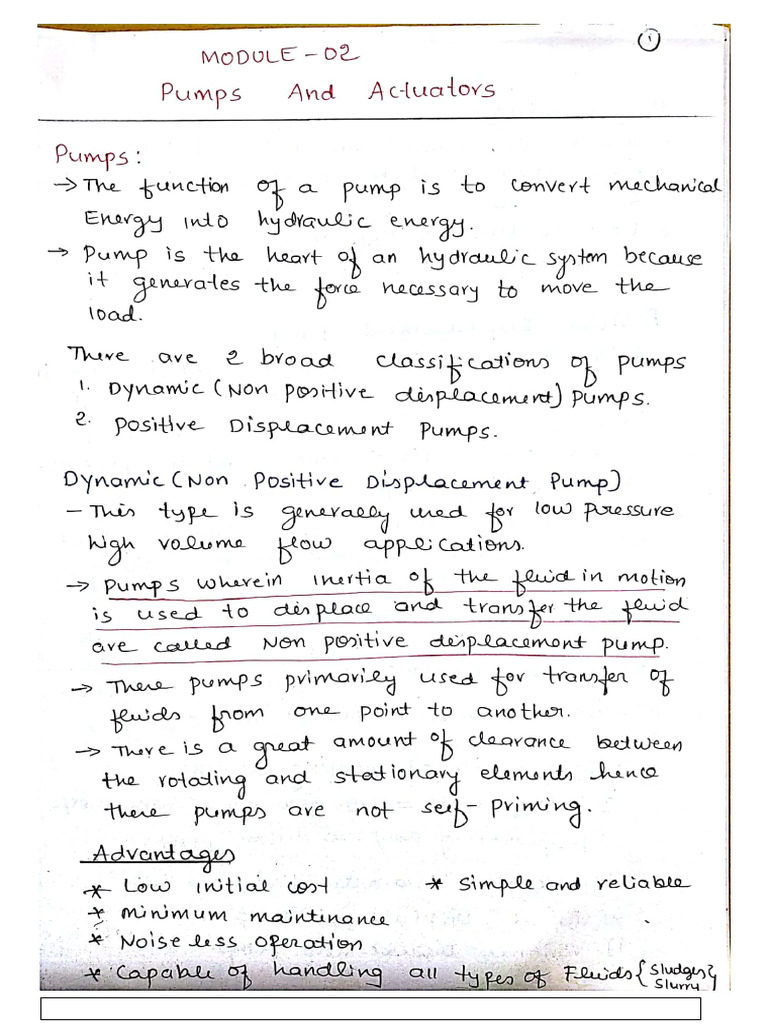 1
MODULE-02
Pumps And Actuators
Pumps:
→ The function of a pump is to convert mechanical
Energy into hydraulic energy.
→ Pump is the heart of an hydraulic system because
it generates the force necessary to move the
load.
There are 2 broad classifications of pumps
1. Dynamic (Non positive displacement) Pumps.
2. positive Displacement Pumps.
Dynamic (Non Positive Displacement Pump)
- This type is generally used for low pressure
high volume flow applications.
→ Pumps wherein inertia of the fluid in motion
is used to displace and transfer the fluid
are called Non positive displacement pump.
→ These pumps primarily used for transfer of
fluids from one point to another.
→ There is a great amount of clearance between
the rotating and stationary elements hence
these pumps are not self-priming.
Advantages
* Low initial cost * simple and reliable
* minimum maintinance
* Noise less operation
* Capable of handling all types of Fluids {Sludges}
Slurry